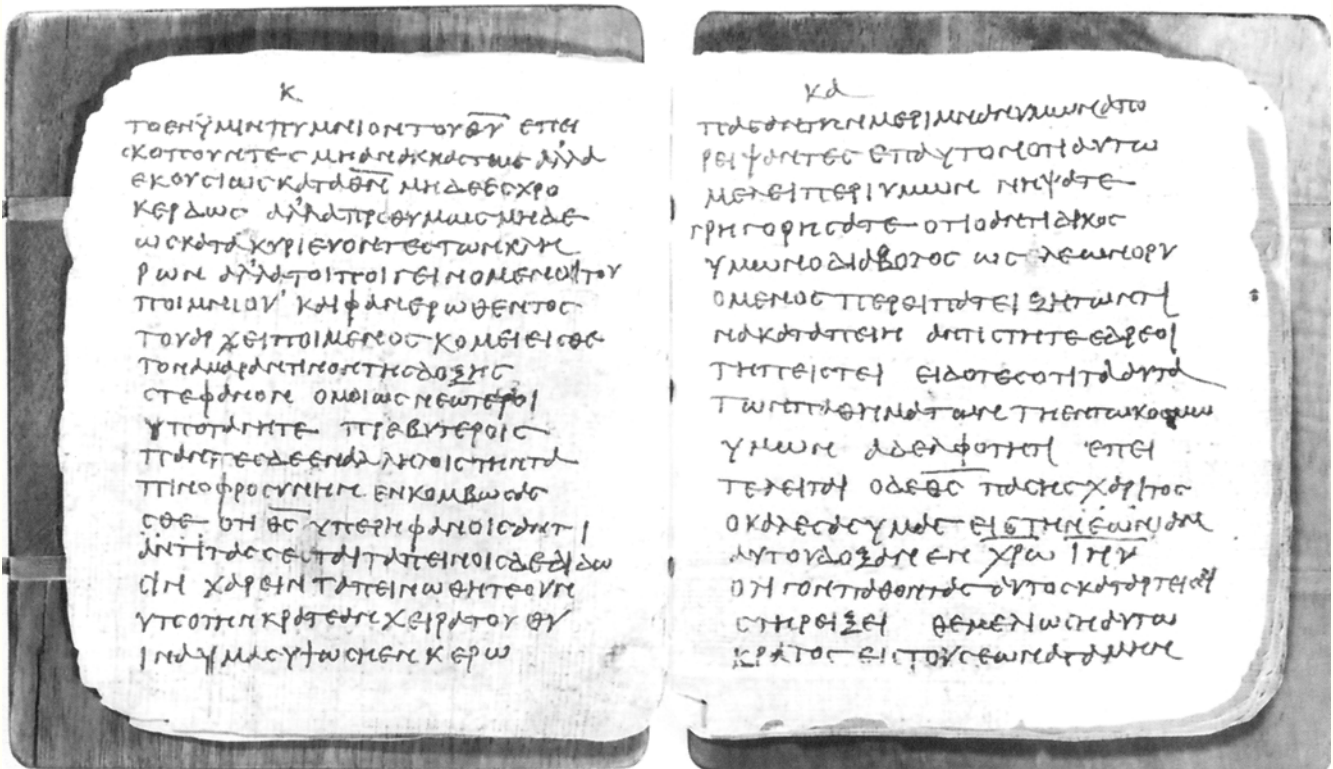 κ
το εν ϋμιν πυμνιον του θυ επει
σκοπουντες μη ανακκαστως αλλα
εκουσιως κατα θν μηδε εσχρο
κερδως αλλα προθυμως μηδε
ως κατακυριευοντες των κλη
ρων αλλα τοιποι γεινομενοι του
ποιμνιου και φανερωθεντος
του αρχειποιμενος κομειεισθε
τον αμαραντινον της δοξης
στεφανον ομοιως νεωτεροι
υποταγητε πρεβυτεροις
παντες δε εν αλληλοις την τα
πινοφροσυνην ενκομβωσασ
σθε οτι θς υπερηφανοις αντι
αντιτασσεται ταπεινοις δε διδω
σιν χαρειν ταπεινωθητε ουν
υπο την κρατεαν χειρα του θυ
ινα υμας υψωση εν κερω
κα
πασαν την μεριμναν υμων απο
ρειψαντες επ αυτον οτι αυτω
μελει περι υμων νηψατε
γρηγορησατε οτι ο αντιδικος
υμων ο διαβολος ως λεων ορυ
ομενος περειπατει ζητων τι
να καταπειη αντιστητε εδρεοι
τη πειστει ειδοτες οτι τα αυτα
των παθηματων τη εν τω κοσμω
υμων αδελφοτητι επει
τελειται ο δε θς πασης χαριτος
ο καλεσας υμας εις την εωνιαν
αυτου δοξαν εν χρω ιηυ
ολιγον παθοντας αυτος καταρτεισει
στηρειξει θεμελιωση αυτω
κρατος εις τους εωνας αμην